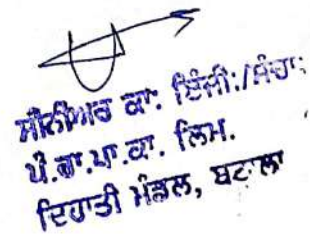 ਸੀਨੀਅਰ ਕਾ. ਇੰਜੀ:/ਸੰਚਾ:
ਪੰ.ਰਾ.ਪਾ.ਕਾ. ਲਿਮ.
ਦਿਹਾਤੀ ਮੰਡਲ, ਬਟਾਲਾ